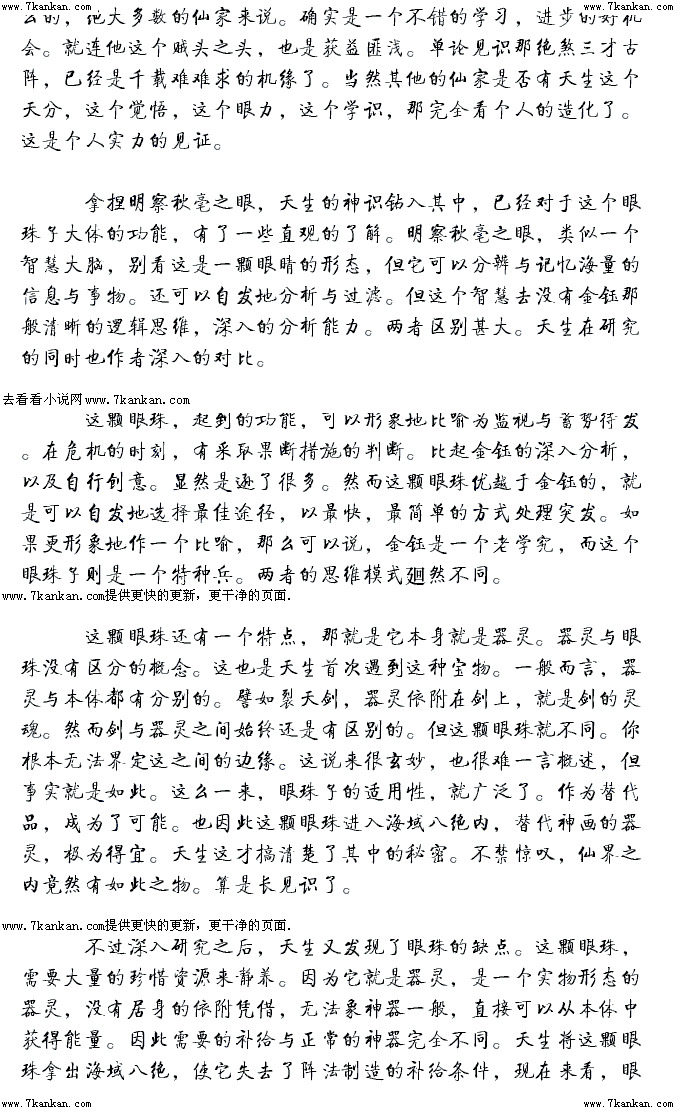 么的，他大多数的仙家来说。确实是一个不错的学习，进步的好机
会。就连他这个贼头之头，也是获益匪浅。单论见识那绝煞三才古
阵，已经是千载难难求的机缘了。当然其他的仙家是否有天生这个
天分，这个觉悟，这个眼力，这个学识，那完全看个人的造化了。
这是个人实力的见证。
拿捏明察秋毫之眼，天生的神识钻入其中，已经对于这个眼
珠子大体的功能，有了一些直观的了解。明察秋毫之眼，类似一个
智慧大脑，别看这是一颗眼睛的形态，但它可以分辨与记忆海量的
信息与事物。还可以自发地分析与过滤。但这个智慧去没有金钰那
般清晰的逻辑思维，深入的分析能力。两者区别甚大。天生在研究
的同时也作者深入的对比。
去看看小说网www.7kankan.com
这颗眼珠，起到的功能，可以形象地比喻为监视与蓄势待发
。在危机的时刻，有采取果断措施的判断。比起金钰的深入分析，
以及自行创意。显然是逊了很多。然而这颗眼珠优越于金钰的，就
是可以自发地选择最佳途径，以最快，最简单的方式处理突发。如
果更形象地作一个比喻，那么可以说，金钰是一个老学究，而这个
眼珠子则是一个特种兵。两者的思维模式廻然不同。
www.7kankan.com提供更快的更新，更干净的页面.
这颗眼珠还有一个特点，那就是它本身就是器灵。器灵与眼
珠没有区分的概念。这也是天生首次遇到这种宝物。一般而言，器
灵与本体都有分别的。譬如裂天剑，器灵依附在剑上，就是剑的灵
魂。然而剑与器灵之间始终还是有区别的。但这颗眼珠就不同。你
根本无法界定这之间的边缘。这说来很玄妙，也很难一言概述，但
事实就是如此。这么一来，眼珠子的适用性，就广泛了。作为替代
品，成为了可能。也因此这颗眼珠进入海域八绝内，替代神画的器
灵，极为得宜。天生这才搞清楚了其中的秘密。不禁惊叹，仙界之
内竟然有如此之物。算是长见识了。
www.7kankan.com提供更快的更新，更干净的页面.
不过深入研究之后，天生又发现了眼珠的缺点。这颗眼珠，
需要大量的珍惜资源来静养。因为它就是器灵，是一个实物形态的
器灵，没有居身的依附凭借，无法象神器一般，直接可以从本体中
获得能量。因此需要的补给与正常的神器完全不同。天生将这颗眼
珠拿出海域八绝，使它失去了阵法制造的补给条件，现在来看，眼
www.7kankan.com www.7kankan.com www.7kankan.com